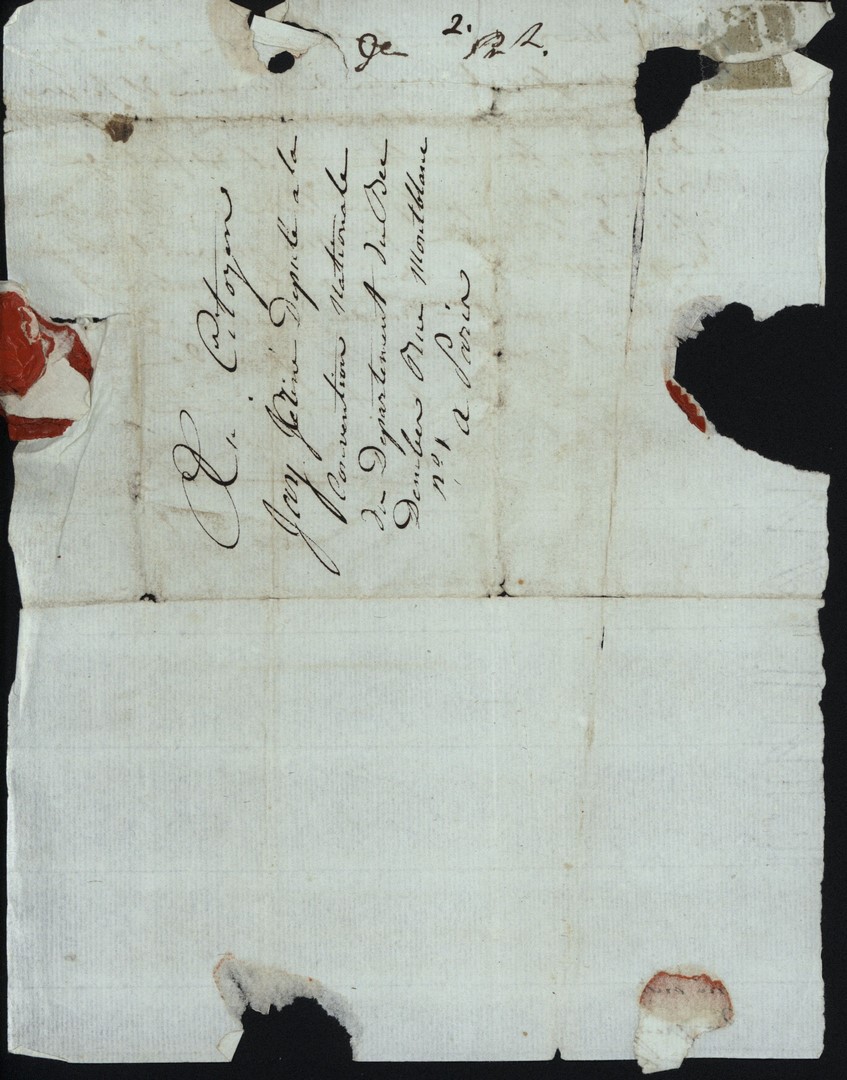 Au Citoyen
Jay Feline Depute a la
Convention Nationale
du Departement du Bec
Dembes Rue Montblanc
n° 1 a Paris
2.